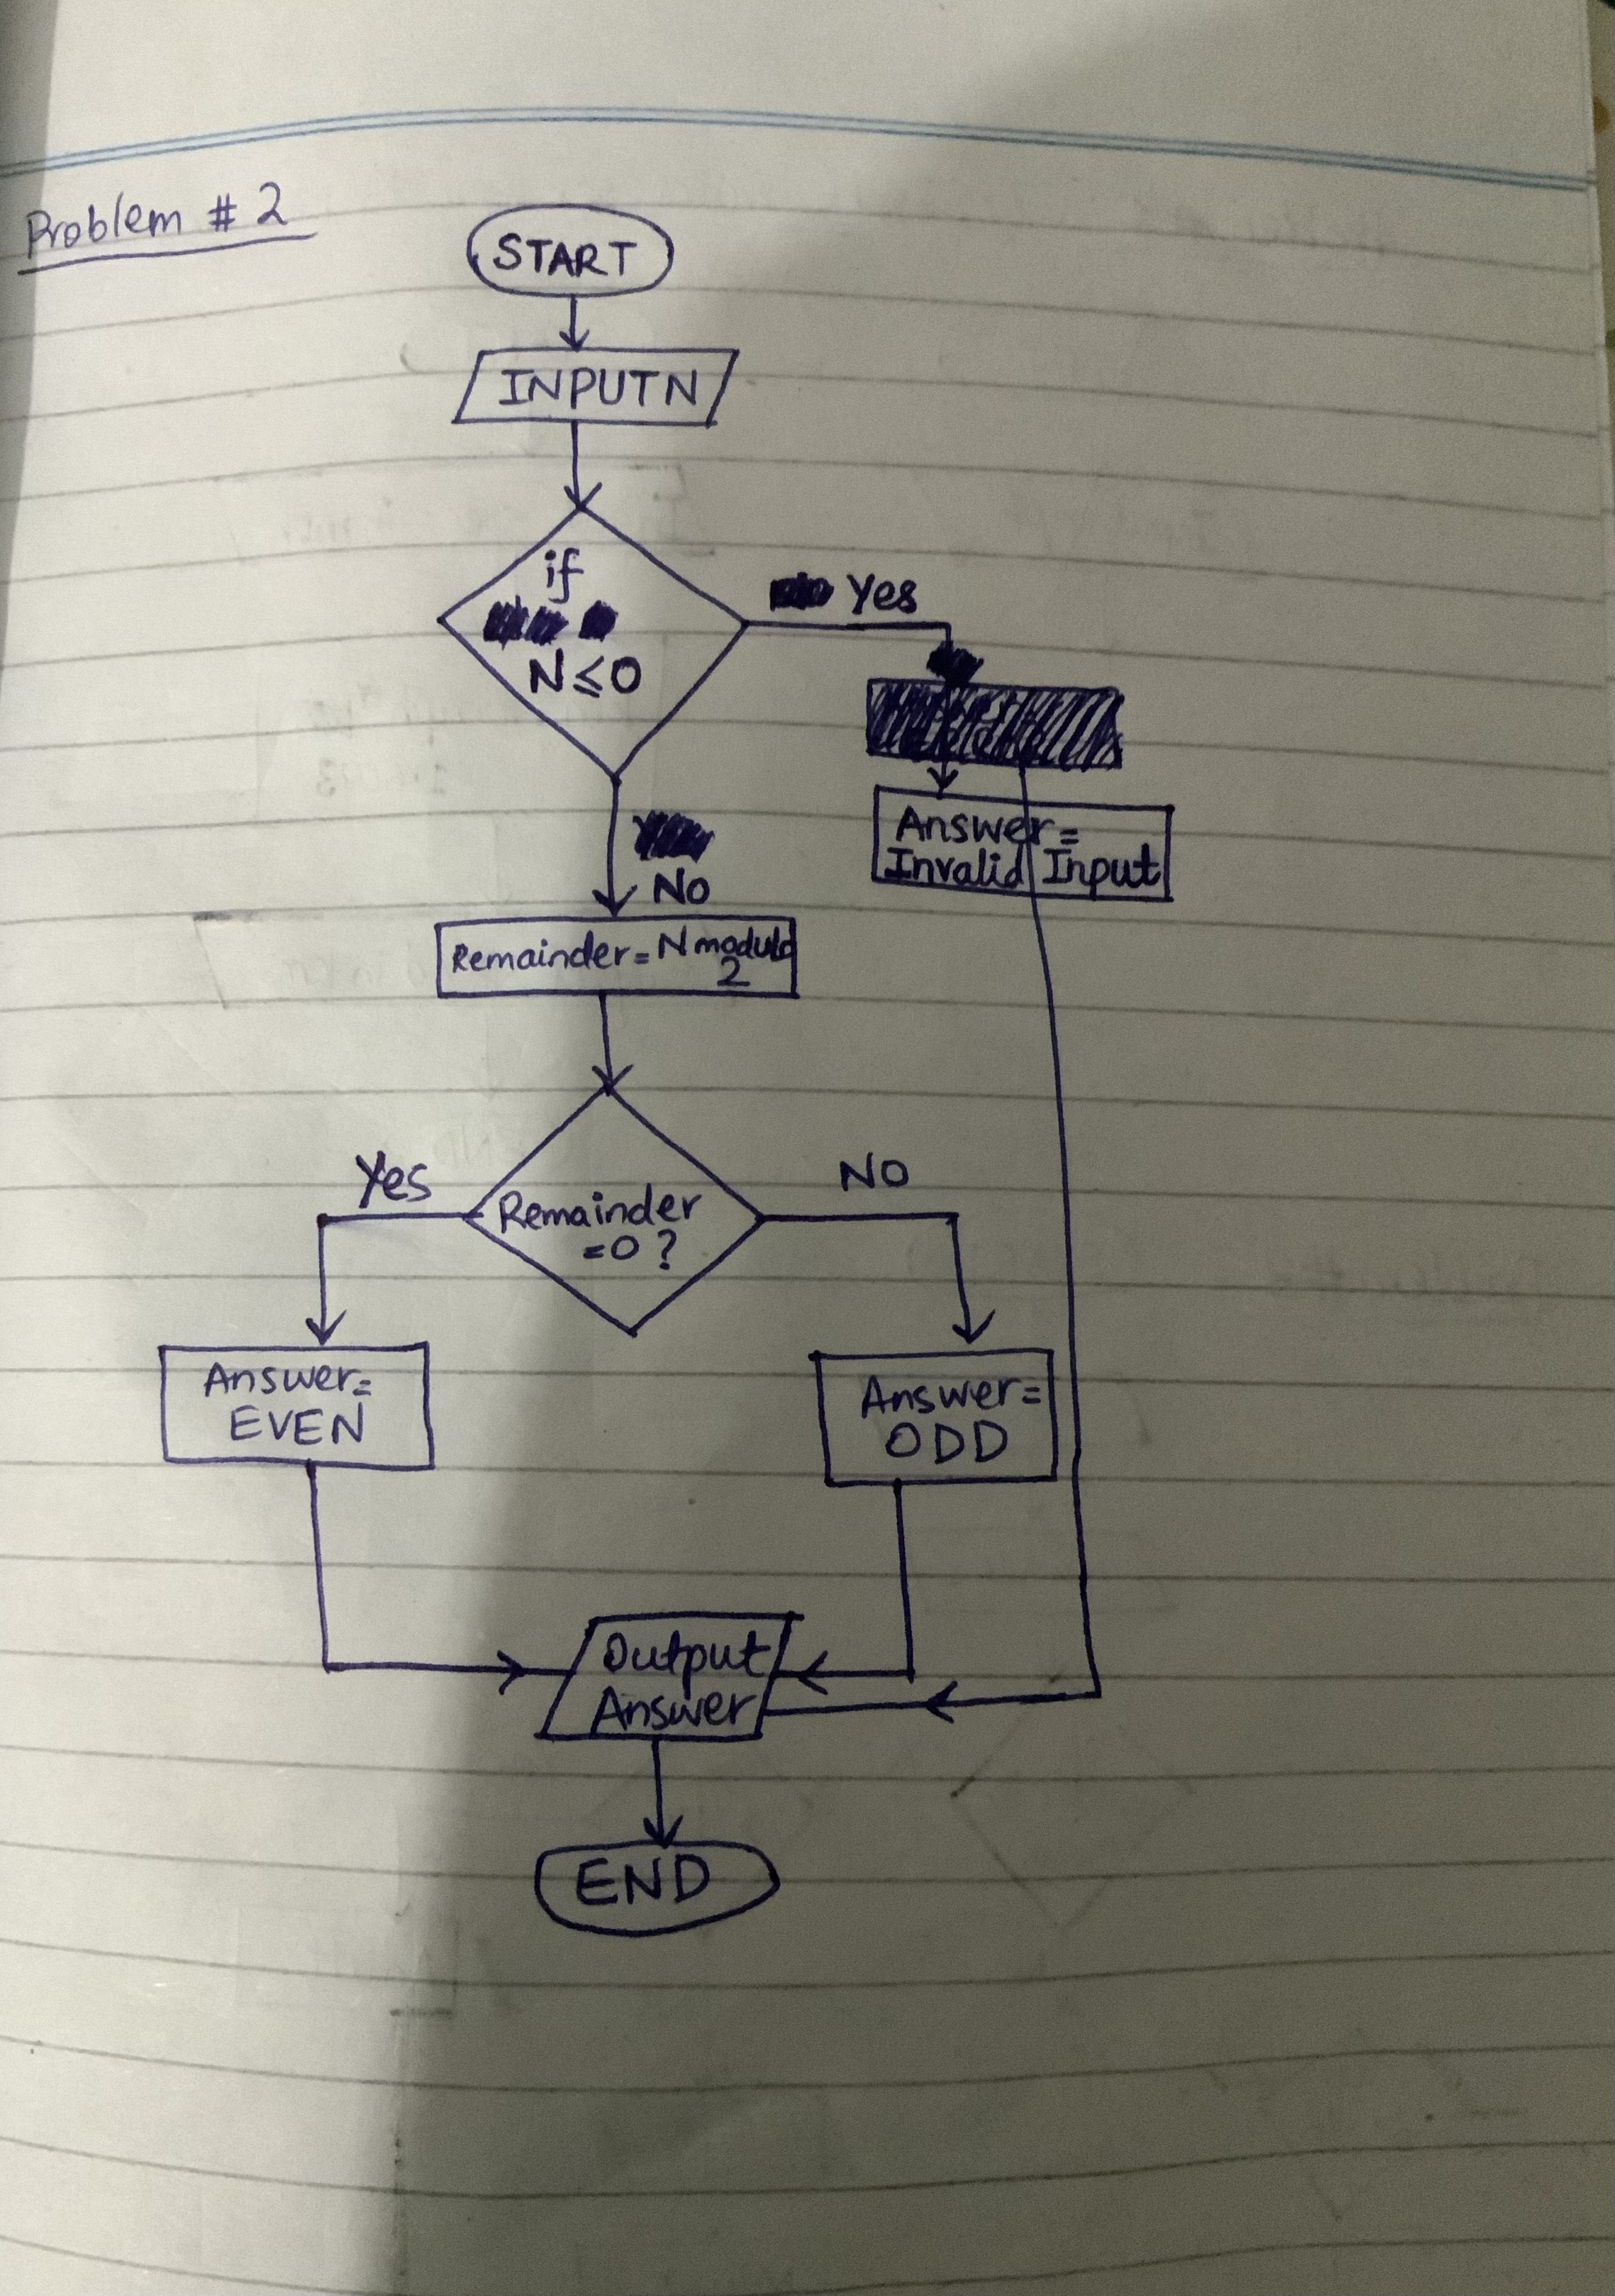 Problem # 2
START
INPUT N
if
N ≤ 0
Yes
Answer =
Invalid Input
No
Remainder = N modulo
2
Yes
NO
Remainder
= 0 ?
Answer =
EVEN
Answer =
ODD
Output
Answer
END